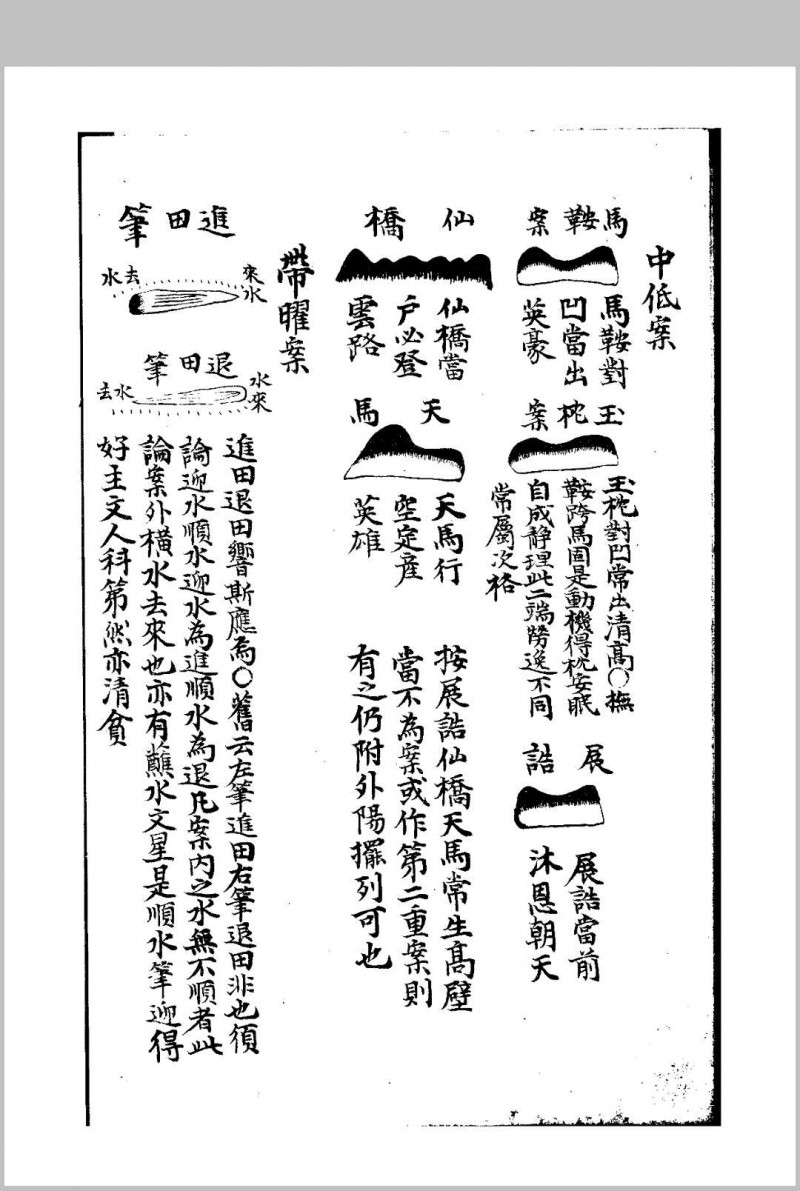 中低案
馬鞍案
馬鞍對
凹當出
英豪
玉枕案
玉枕對凹常出清高〇撫
鞍跨馬固是動機得枕安眠
自成静理此二端勞逸不同
常屬次格
展誥
展誥當前
沐恩朝天
仙橋
仙橋當
戶必登
雲路
天馬
天馬行
空定産
英雄
按展誥仙橋天馬常生髙壁
當不為案或作第二重案則
有之仍附外陽擺列可也
帶曜案
進田筆
來水
去水
退田筆
水來
去水
進田退田響斯應焉〇舊云左筆進田右筆退田非也須
論迎水順水迎水為進順水為退凡案内之水無不順者此
論案外橫水去來也亦有蘸水文星是順水筆迎得
好主文人科第然亦清貧